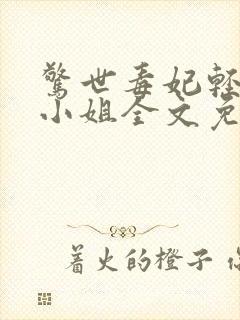 驚世毒妃輕
小姐全文免
着火的橙子